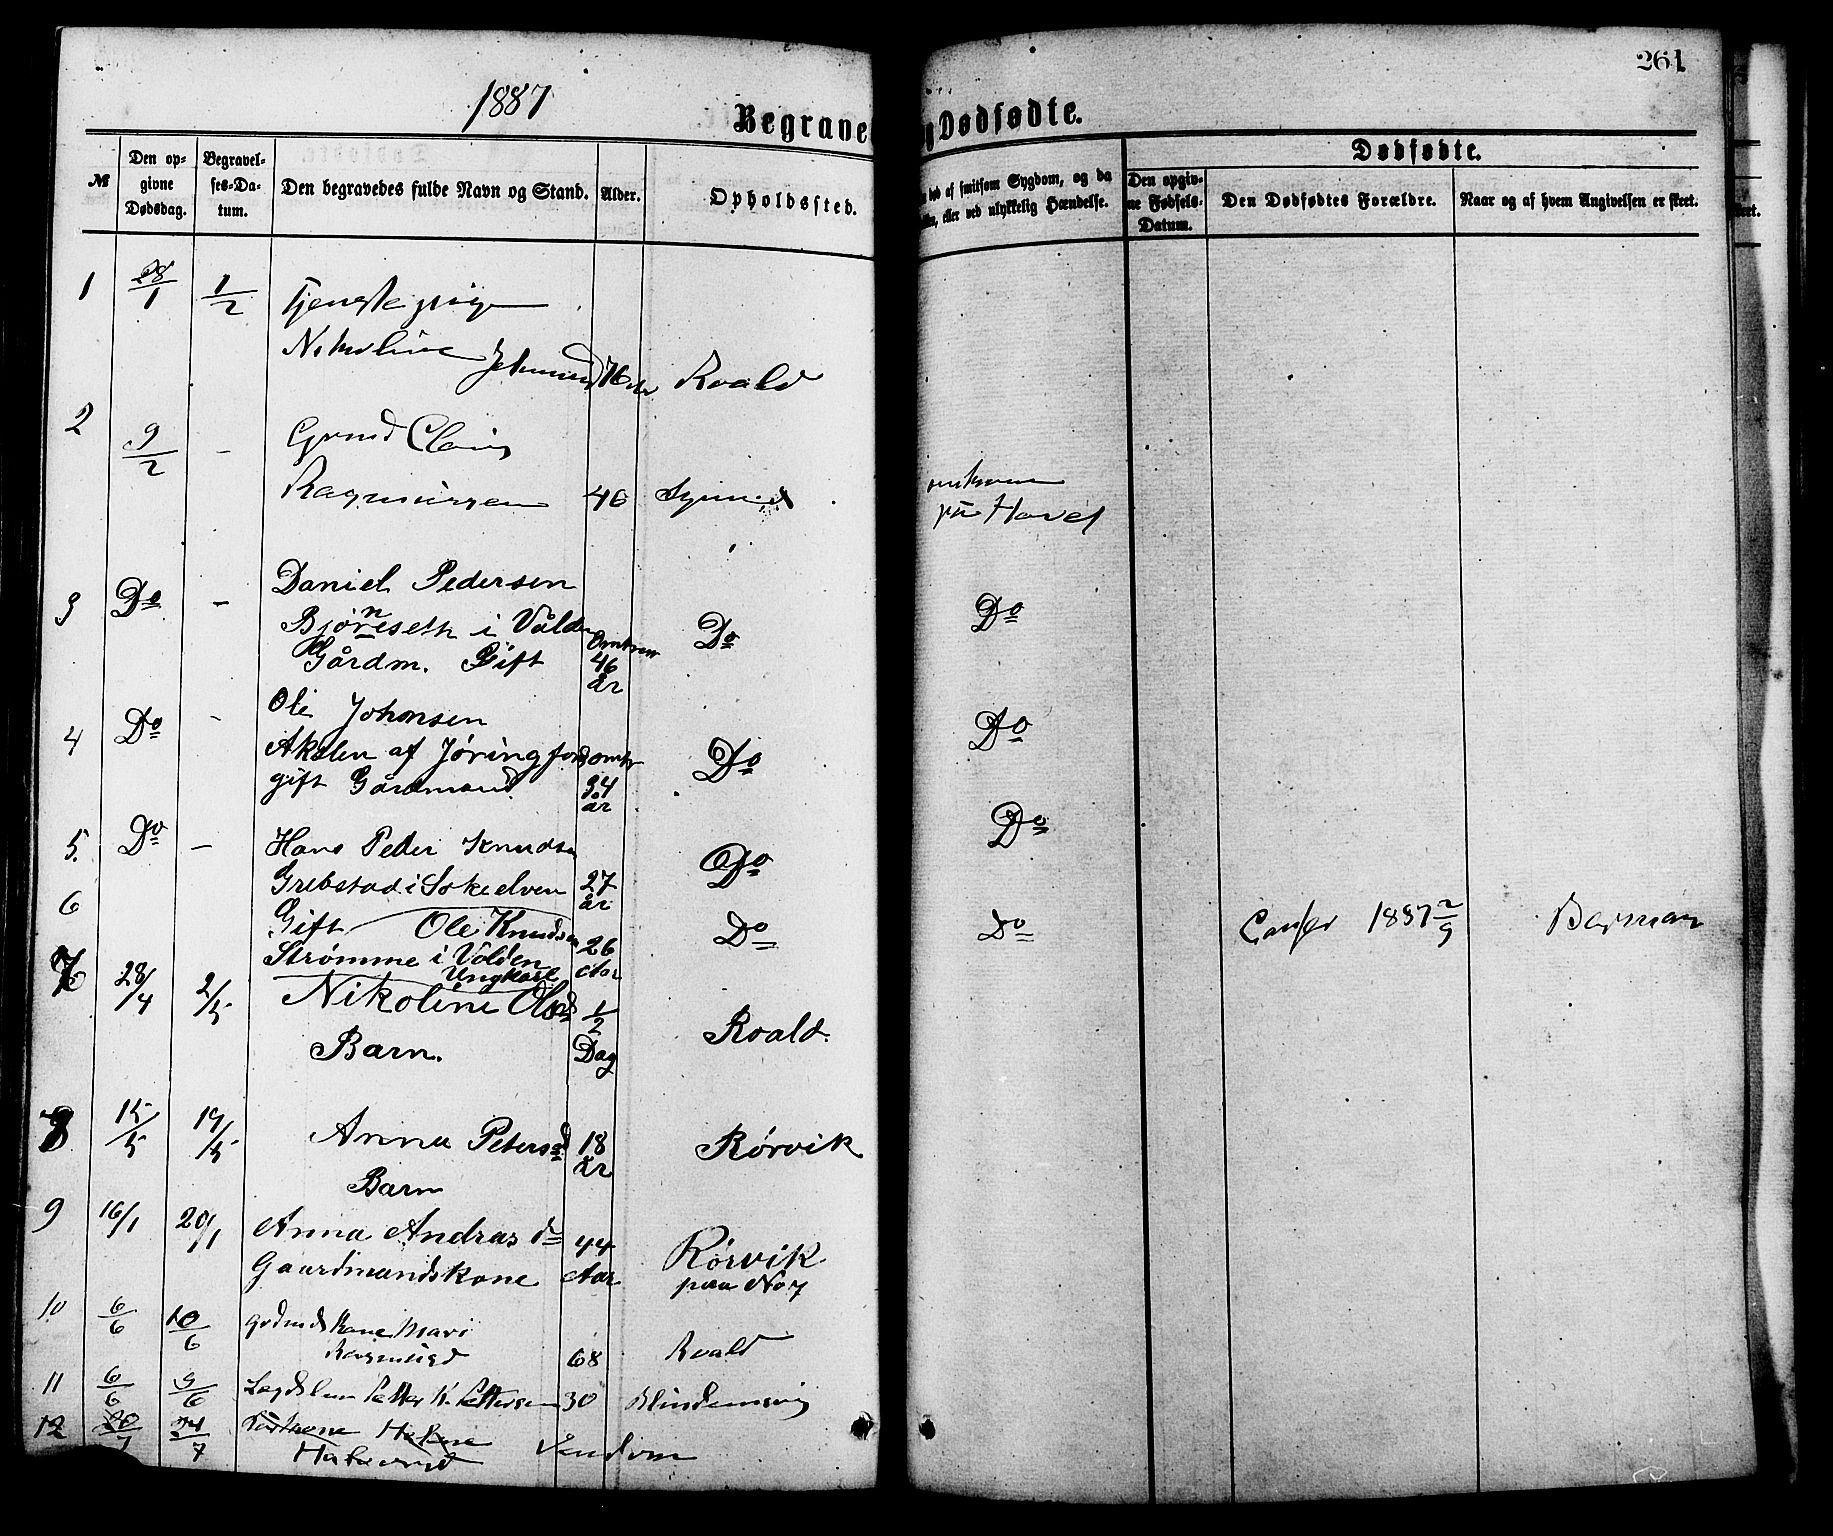 1887
Begrave
g Dødfødte.
261
№
Den op-
givne
Dødsdag.
Begravel-
ses-Da-
tum.
Den begravedes fulde Navn og Stand.
Alder.
Opholdssted.
død af smitsom Sygdom, og da
eller ved ulykkelig Hændelse.
Dødfødte.
Den opgiv-
ne Fødsels-
Datum.
Den Dødfødtes Forældre.
Naar og af hvem Angivelsen er skeet.
1 28/1 1/2 Tjenestepige
Nikoline 76 Roald
2 9/2 - Grmd
Rasmussen 46
paa Havet
3 Do - Daniel Pedersen
Bjørneseth i Volden Omtren Do Do
Gårdm. Gift 46
år
4 Do - Ole Johnsen
Akslen af Jøringfjord omtr Do Do
gift Gårdmand 34
år
5. Do - Hans Peder Knudsen Do Do
Grebstad i Sokelven 27
år
6 Gift Ole Knudsen Do Do 1887 2/9
Strømme i Volden 26
Ungkarl Aar
7 28/4 2/5 Nikoline Olsd 1/2 Roald.
Barn. Dag
8 15/5 19/5 Anna Petersd 18 Rørvik
Barn år
9 16/1 20/1 Anna Andrasd 44 Rørvik
Gaardmandskone Aar paa No 7
10 6/6 10/6 Grdmdskone Mari
Rasmusd 68 Roald
11 6/6 9/6 Petter K. Pettersen 30 Blindemsvig
12 20/7 24/7